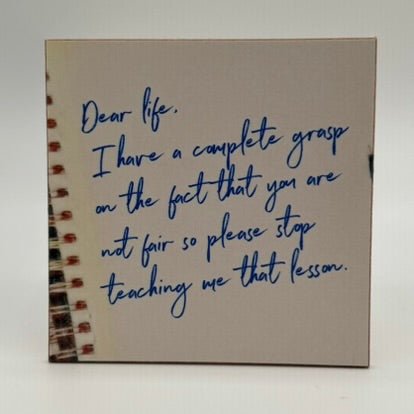 Dear life.
I have a complete grasp
on the fact that you are
not fair so please stop
teaching me that lesson.